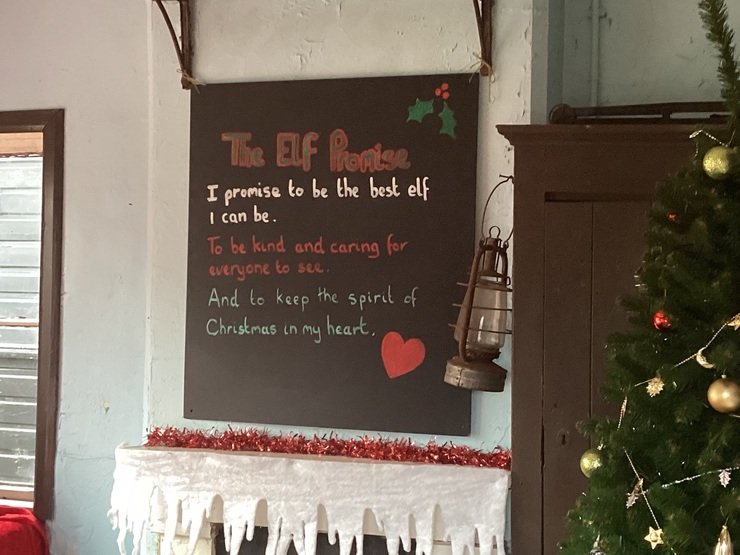 The Elf Promise
I promise to be the best elf
I can be.
To be kind and caring for
everyone to see.
And to keep the spirit of
Christmas in my heart.